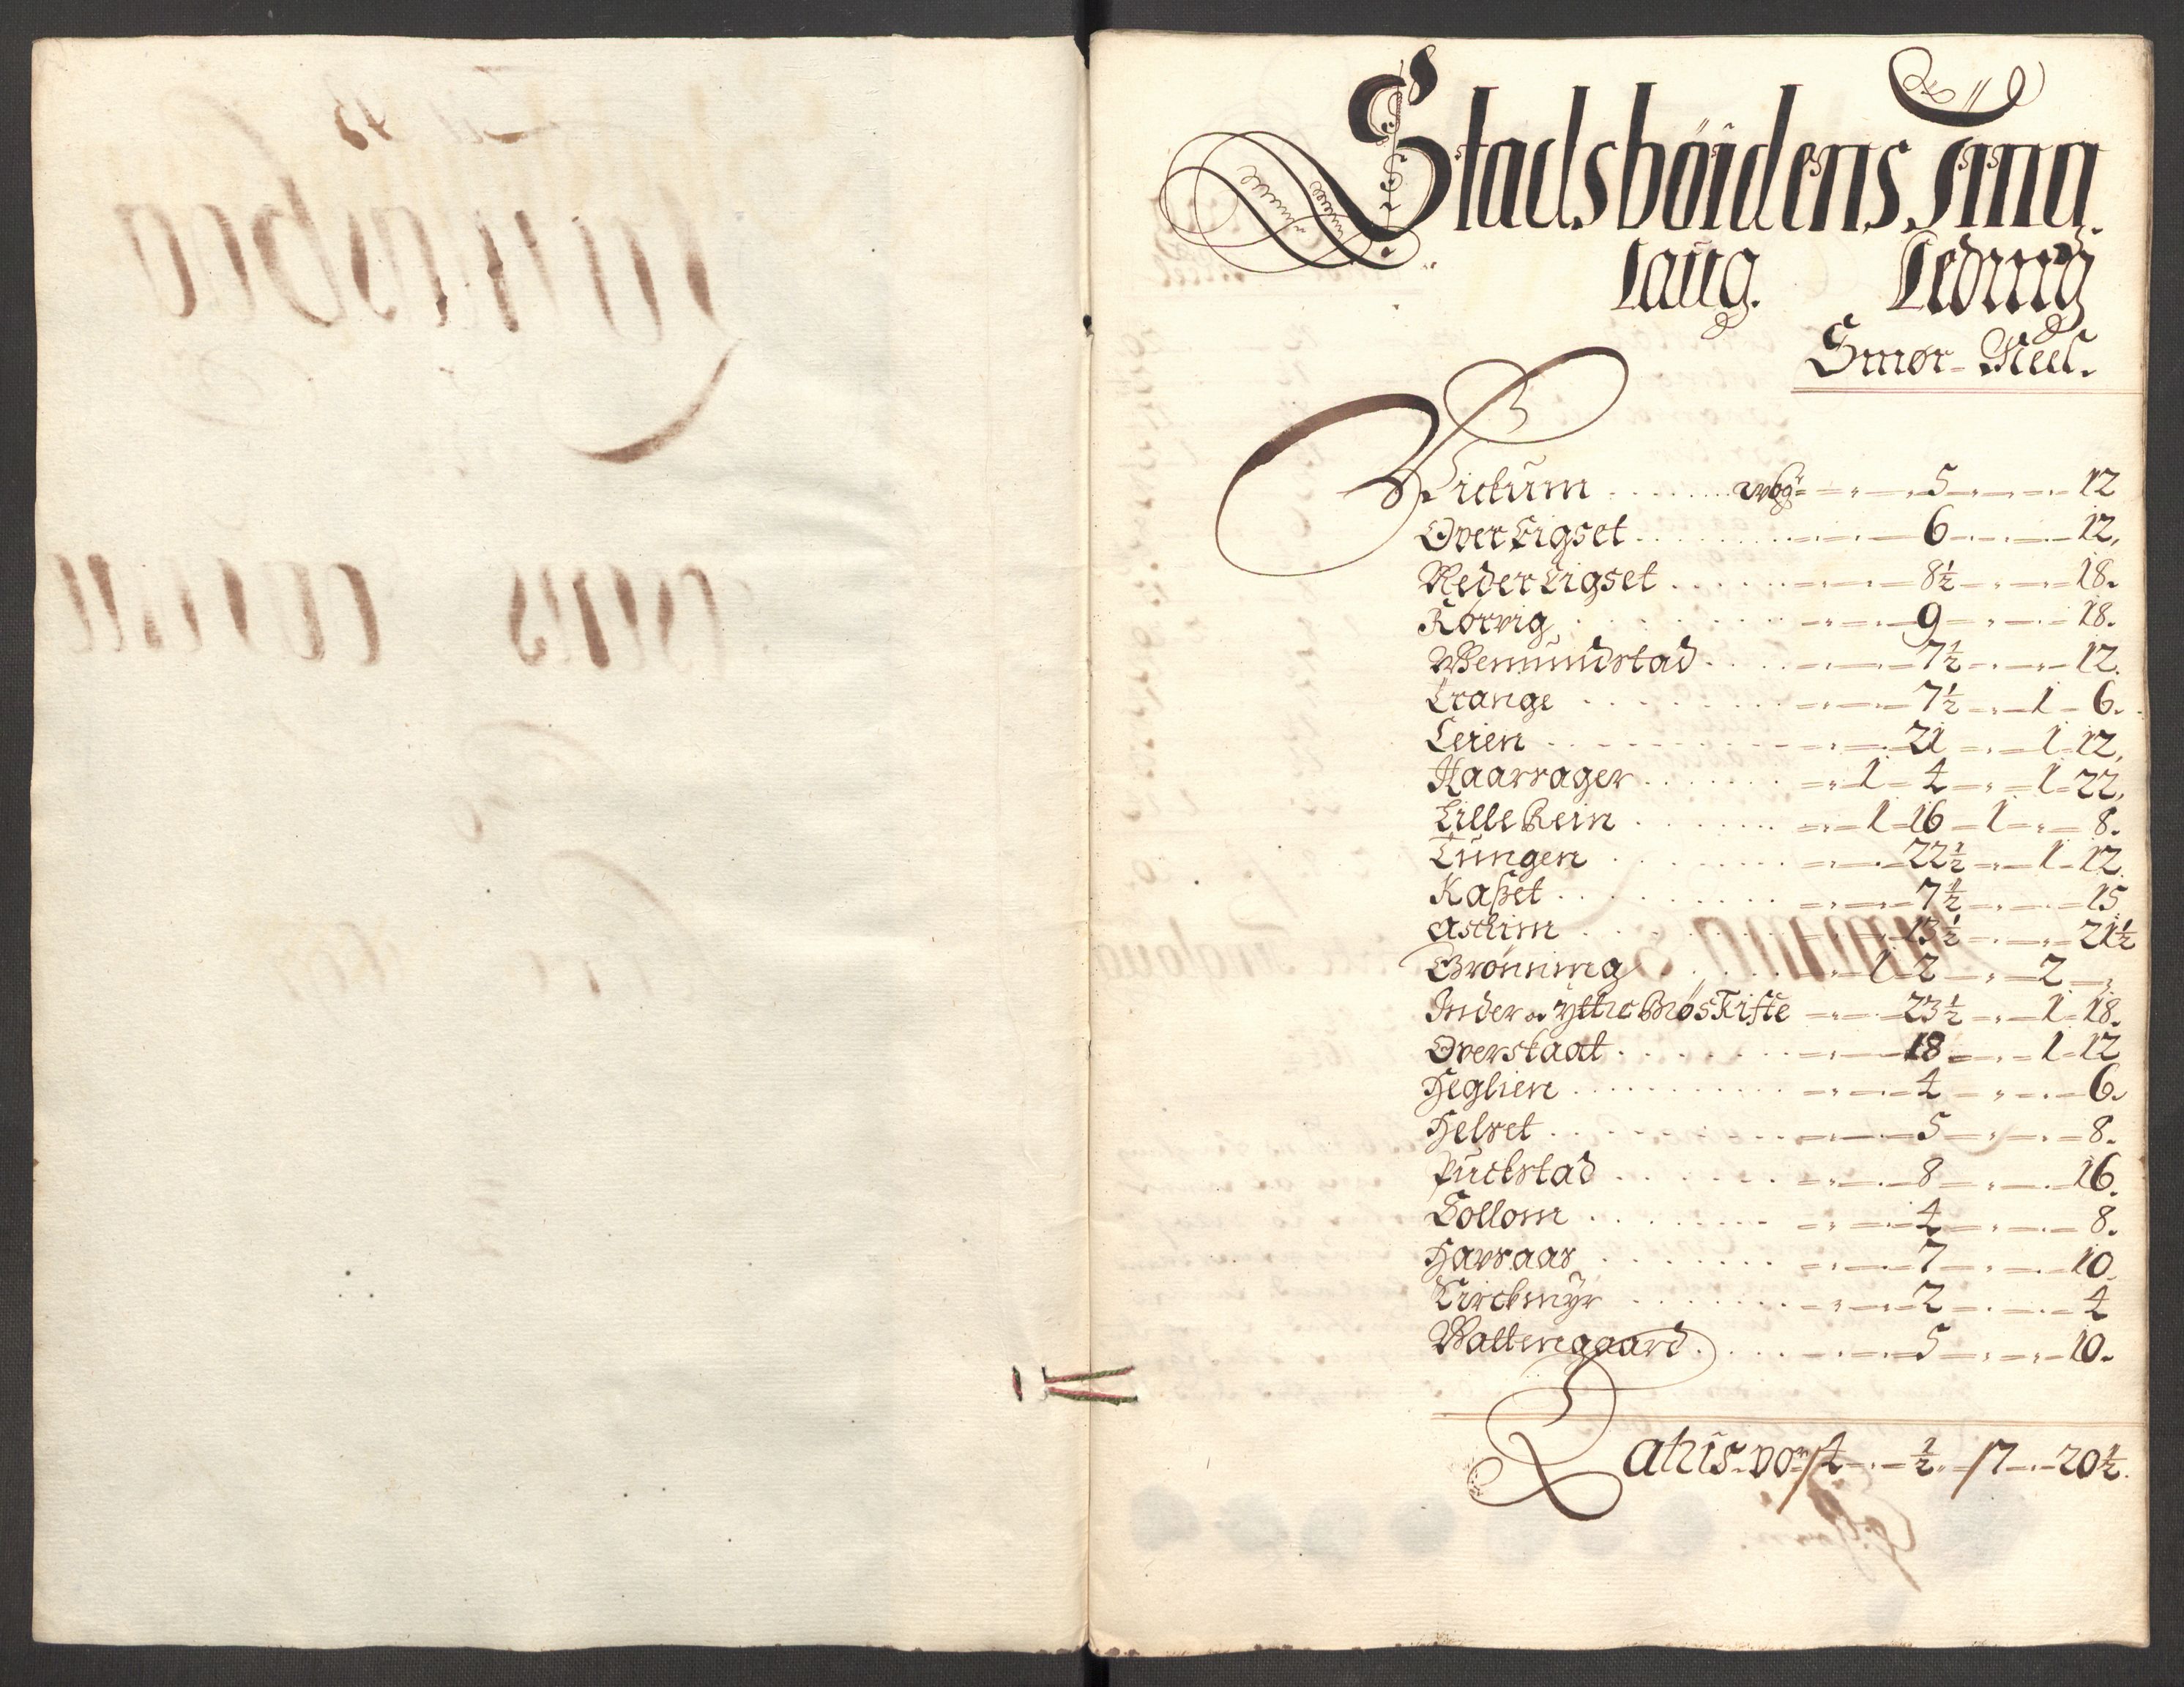 Stadsböidens Ting
laug. Leding
Smør - Meel.
Vickum . . . . . vog 5 12
Over Ligset . . . . 6 12.
Neder Ligset . . . . 8½ 18.
Rörvig . . . . 9 18.
Wemundstad . . . . 7½ 12.
Crange . . . . 7½ 1 6.
Leien . . . . 21 1 12.
Haarsager . . . . 1 4 1 22.
Lille Rein . . . . 1 16 1 8.
Lungen . . . . 22½ 1 12.
Kaßet . . . . 7½ 15.
Astrim . . . . 13½ 21½
Grönning . . . . 1 2 2
Inder oc yttre Bösskifte 23½ 1 18.
Overstaat . . . . 18 1 12
Heglien . . . . 4 6.
Helset . . . . 5 8.
Puckstad . . . . 8 16.
Sollom . . . . 4 8.
Havsaas . . . . 7 10.
Kirckmÿr . . . . 2 4
Wattengaard . . . . 5 10.
Latus vor 4 ½ 17 20½